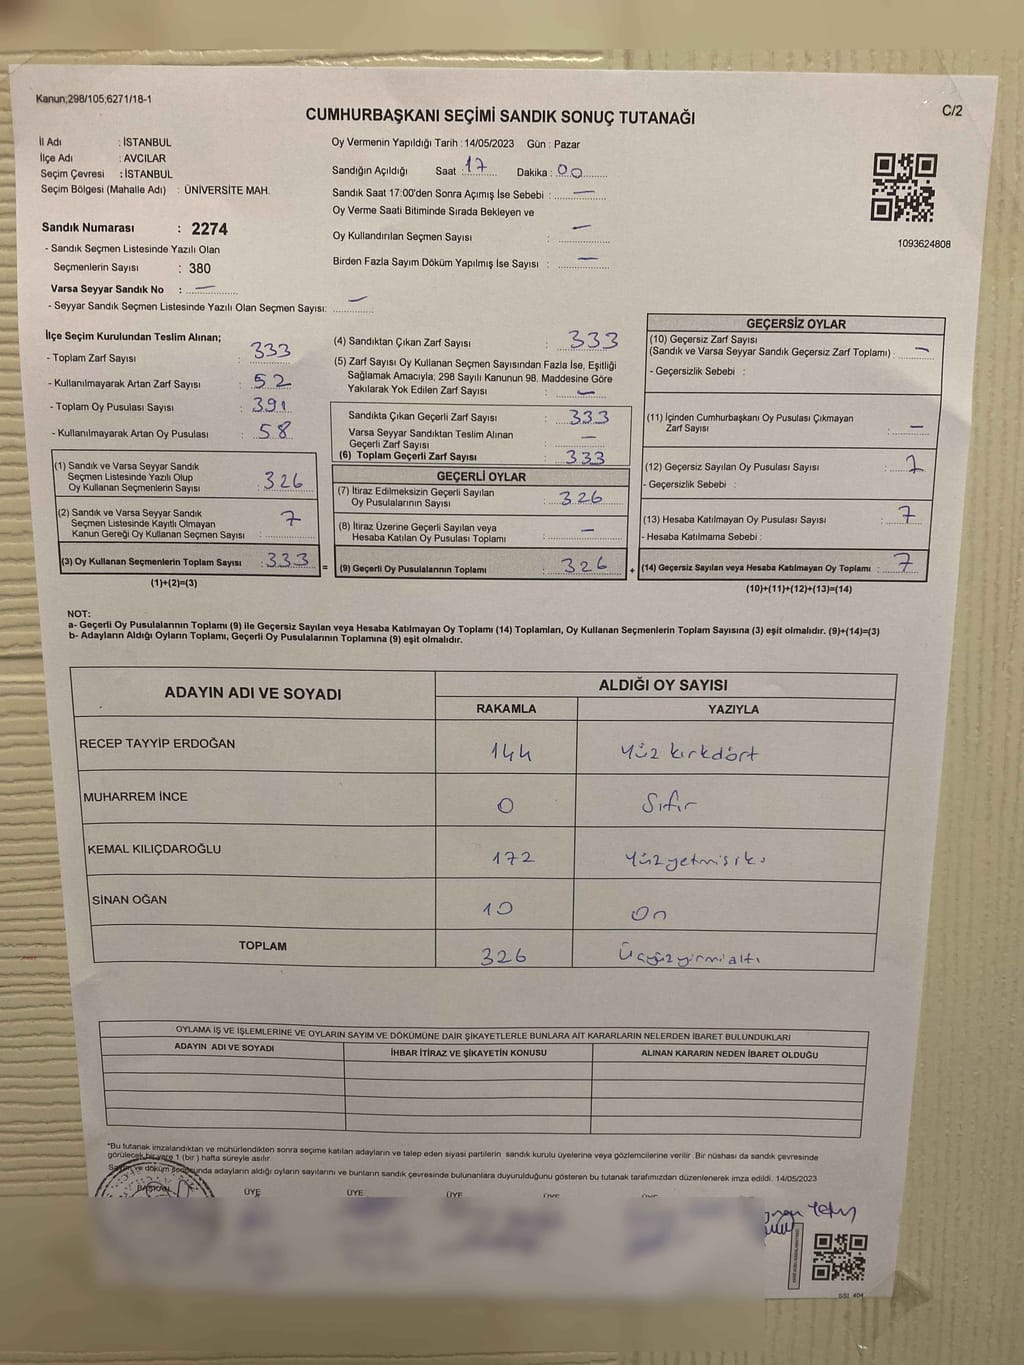 Kanun;298/105;6271/18-1
C/2
CUMHURBAŞKANI SEÇİMİ SANDIK SONUÇ TUTANAĞI
İl Adı : İSTANBUL
İlçe Adı : AVCILAR
Seçim Çevresi : İSTANBUL
Seçim Bölgesi (Mahalle Adı) : ÜNİVERSİTE MAH.
Oy Vermenin Yapıldığı Tarih : 14/05/2023 Gün : Pazar
Sandığın Açıldığı Saat : 17 Dakika : 00
Sandık Saat 17:00'den Sonra Açımış İse Sebebi : —
Oy Verme Saati Bitiminde Sırada Bekleyen ve
Oy Kullandırılan Seçmen Sayısı : —
Birden Fazla Sayım Döküm Yapılmış İse Sayısı : —
1093624808
Sandık Numarası : 2274
- Sandık Seçmen Listesinde Yazılı Olan
Seçmenlerin Sayısı : 380
Varsa Seyyar Sandık No : —
- Seyyar Sandık Seçmen Listesinde Yazılı Olan Seçmen Sayısı: —
İlçe Seçim Kurulundan Teslim Alınan;
- Toplam Zarf Sayısı : 333
- Kullanılmayarak Artan Zarf Sayısı : 52
- Toplam Oy Pusulası Sayısı : 391
- Kullanılmayarak Artan Oy Pusulası : 58
(1) Sandık ve Varsa Seyyar Sandık
Seçmen Listesinde Yazılı Olup
Oy Kullanan Seçmenlerin Sayısı : 326
(2) Sandık ve Varsa Seyyar Sandık
Seçmen Listesinde Kayıtlı Olmayan
Kanun Gereği Oy Kullanan Seçmen Sayısı : 7
(3) Oy Kullanan Seçmenlerin Toplam Sayısı : 333
(1)+(2)=(3)
(4) Sandıktan Çıkan Zarf Sayısı : 333
(5) Zarf Sayısı Oy Kullanan Seçmen Sayısından Fazla İse, Eşitliği
Sağlamak Amacıyla, 298 Sayılı Kanunun 98. Maddesine Göre
Yakılarak Yok Edilen Zarf Sayısı : —
Sandıkta Çıkan Geçerli Zarf Sayısı : 333
Varsa Seyyar Sandıktan Teslim Alınan
Geçerli Zarf Sayısı : —
(6) Toplam Geçerli Zarf Sayısı : 333
GEÇERLİ OYLAR
(7) İtiraz Edilmeksizin Geçerli Sayılan
Oy Pusulalarının Sayısı : 326
(8) İtiraz Üzerine Geçerli Sayılan veya
Hesaba Katılan Oy Pusulası Toplamı : —
= (9) Geçerli Oy Pusulalarının Toplamı : 326
GEÇERSİZ OYLAR
(10) Geçersiz Zarf Sayısı
(Sandık ve Varsa Seyyar Sandık Geçersiz Zarf Toplamı) : —
- Geçersizlik Sebebi :
(11) İçinden Cumhurbaşkanı Oy Pusulası Çıkmayan
Zarf Sayısı : —
(12) Geçersiz Sayılan Oy Pusulası Sayısı :
- Geçersizlik Sebebi :
(13) Hesaba Katılmayan Oy Pusulası Sayısı : 7
- Hesaba Katılmama Sebebi :
+ (14) Geçersiz Sayılan veya Hesaba Katılmayan Oy Toplamı : 7
(10)+(11)+(12)+(13)=(14)
NOT:
a- Geçerli Oy Pusulalarının Toplamı (9) ile Geçersiz Sayılan veya Hesaba Katılmayan Oy Toplamı (14) Toplamları, Oy Kullanan Seçmenlerin Toplam Sayısına (3) eşit olmalıdır. (9)+(14)=(3)
b- Adayların Aldığı Oyların Toplamı, Geçerli Oy Pusulalarının Toplamına (9) eşit olmalıdır.
ADAYIN ADI VE SOYADI ALDIĞI OY SAYISI
RAKAMLA YAZIYLA
RECEP TAYYİP ERDOĞAN 144 Yüz kırkdört
MUHARREM İNCE 0 Sıfır
KEMAL KILIÇDAROĞLU 172 Yüzyetmişiki
SİNAN OĞAN 10 On
TOPLAM 326 Üçyüzyirmialtı
OYLAMA İŞ VE İŞLEMLERİNE VE OYLARIN SAYIM VE DÖKÜMÜNE DAİR ŞİKAYETLERLE BUNLARA AİT KARARLARIN NELERDEN İBARET BULUNDUKLARI
ADAYIN ADI VE SOYADI İHBAR İTİRAZ VE ŞİKAYETİN KONUSU ALINAN KARARIN NEDEN İBARET OLDUĞU
*Bu tutanak imzalandıktan ve mühürlendikten sonra seçime katılan adayların ve talep eden siyasi partilerin sandık kurulu üyelerine veya gözlemcilerine verilir. Bir nüshası da sandık çevresinde
görülecek bir yere 1 (bir) hafta süreyle asılır.
Sayım ve döküm sonucunda adayların aldığı oyların sayılarını ve bunların sandık çevresinde bulunanlara duyurulduğunu gösteren bu tutanak tarafımızdan düzenlenerek imza edildi. 14/05/2023
BAŞKAN ÜYE ÜYE ÜYE ÜYE ÜYE